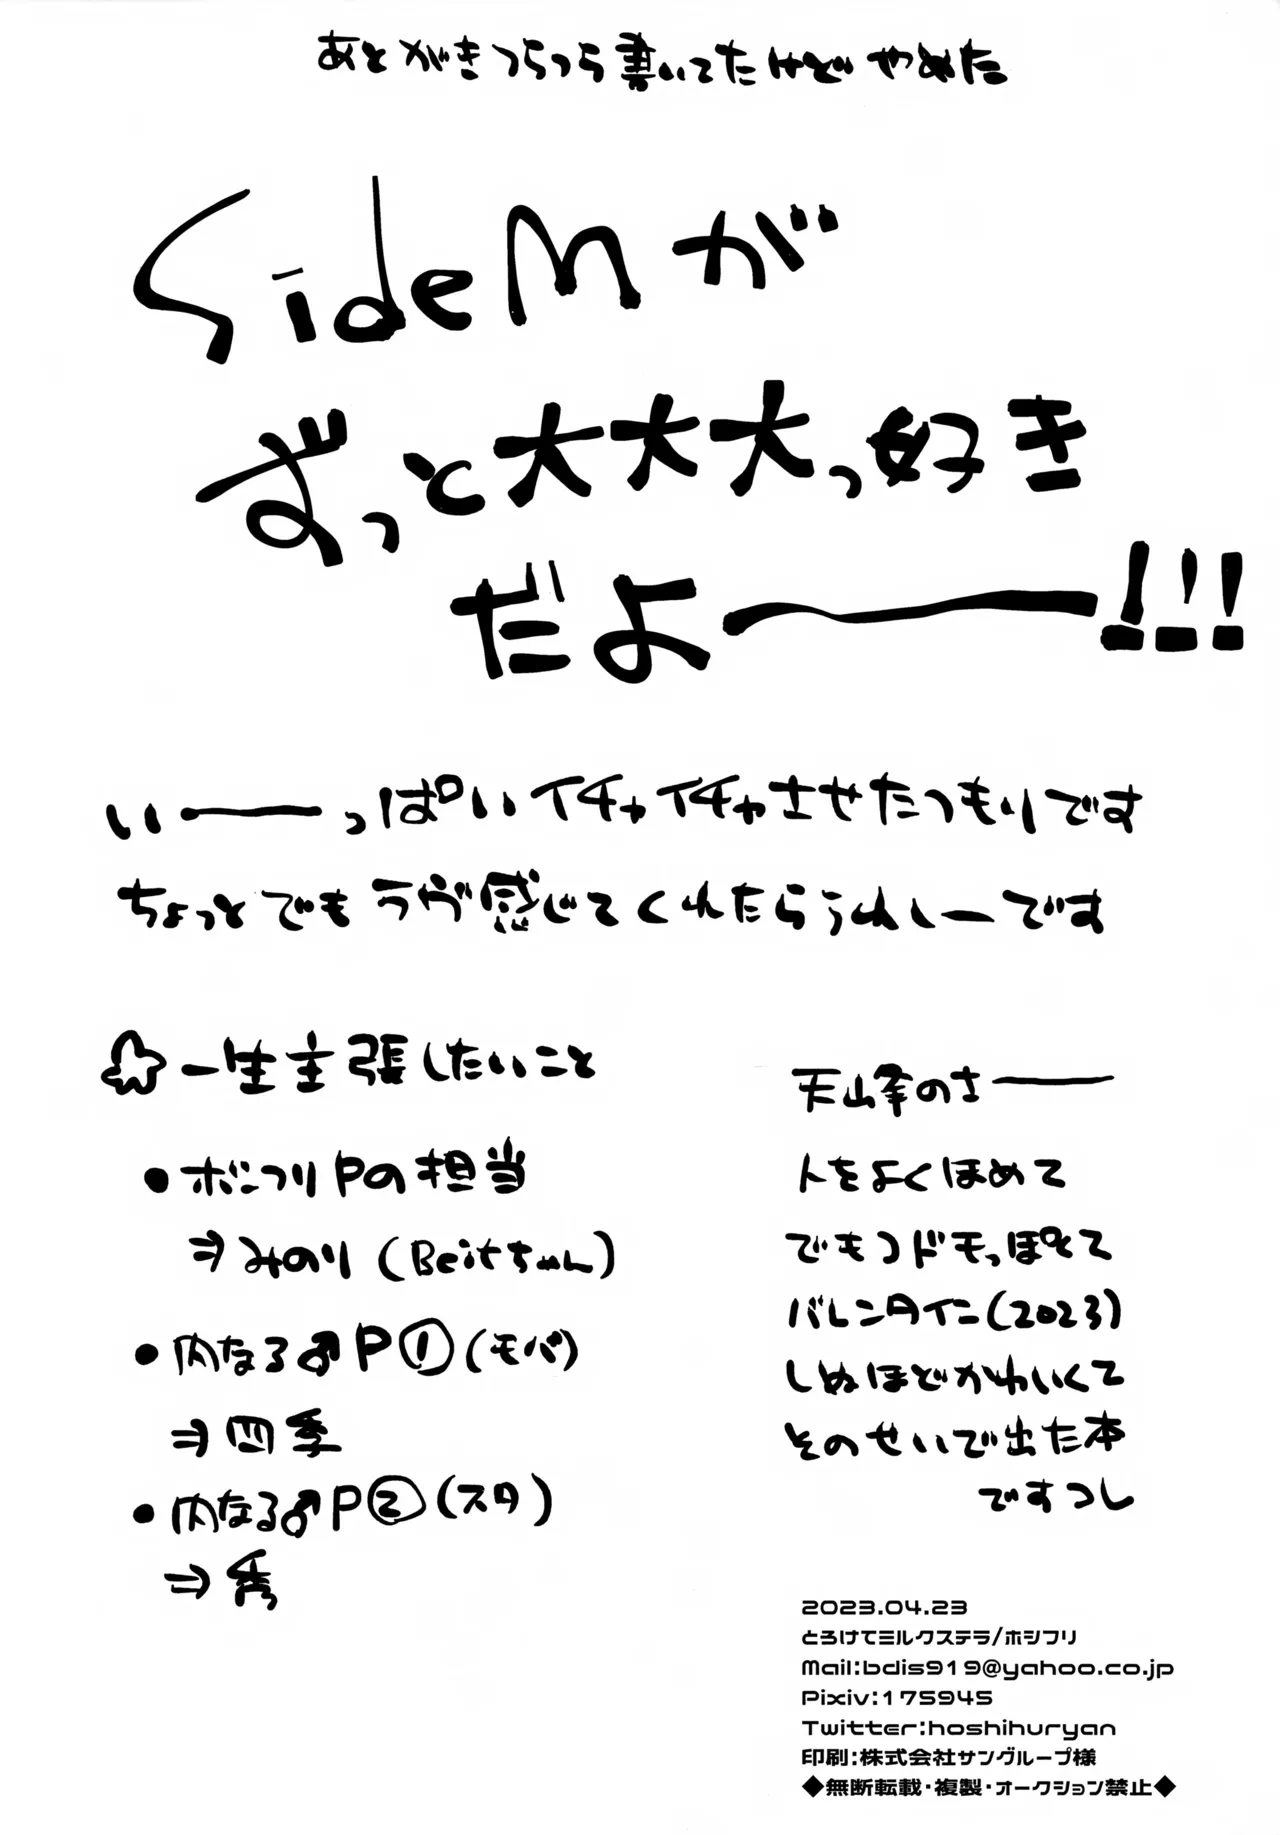 あとがきつらつら書いてたけど やめた
SideMが
ずっと大大大っ好き
だよーーー!!!
いーーっぱいイチャイチャさせたつもりです
ちょっとでもラヴ感じてくれたらうれしーです
☆一生主張したいこと
●ホシフリPの担当
⇒みのり(Beitちゃん)
●内なる♂P①(モバ)
⇒四季
●内なる♂P②(スタ)
⇒秀
天山峯のさーー
人をよくほめて
でもコドモっぽくて
バレンタイン(2023)
しぬほどかわいくて
そのせいで出た本
ですつし
2023.04.23
とろけてミルクステラ/ホシフリ
Mail:bdis919@yahoo.co.jp
Pixiv:175945
Twitter:hoshihuryan
印刷:株式会社サングループ様
◆無断転載・複製・オークション禁止◆